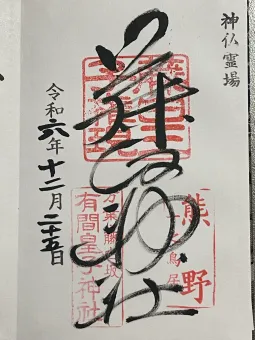 神仏霊場
藤白神社
熊野
有間皇子神社
令和六年十二月二十五日